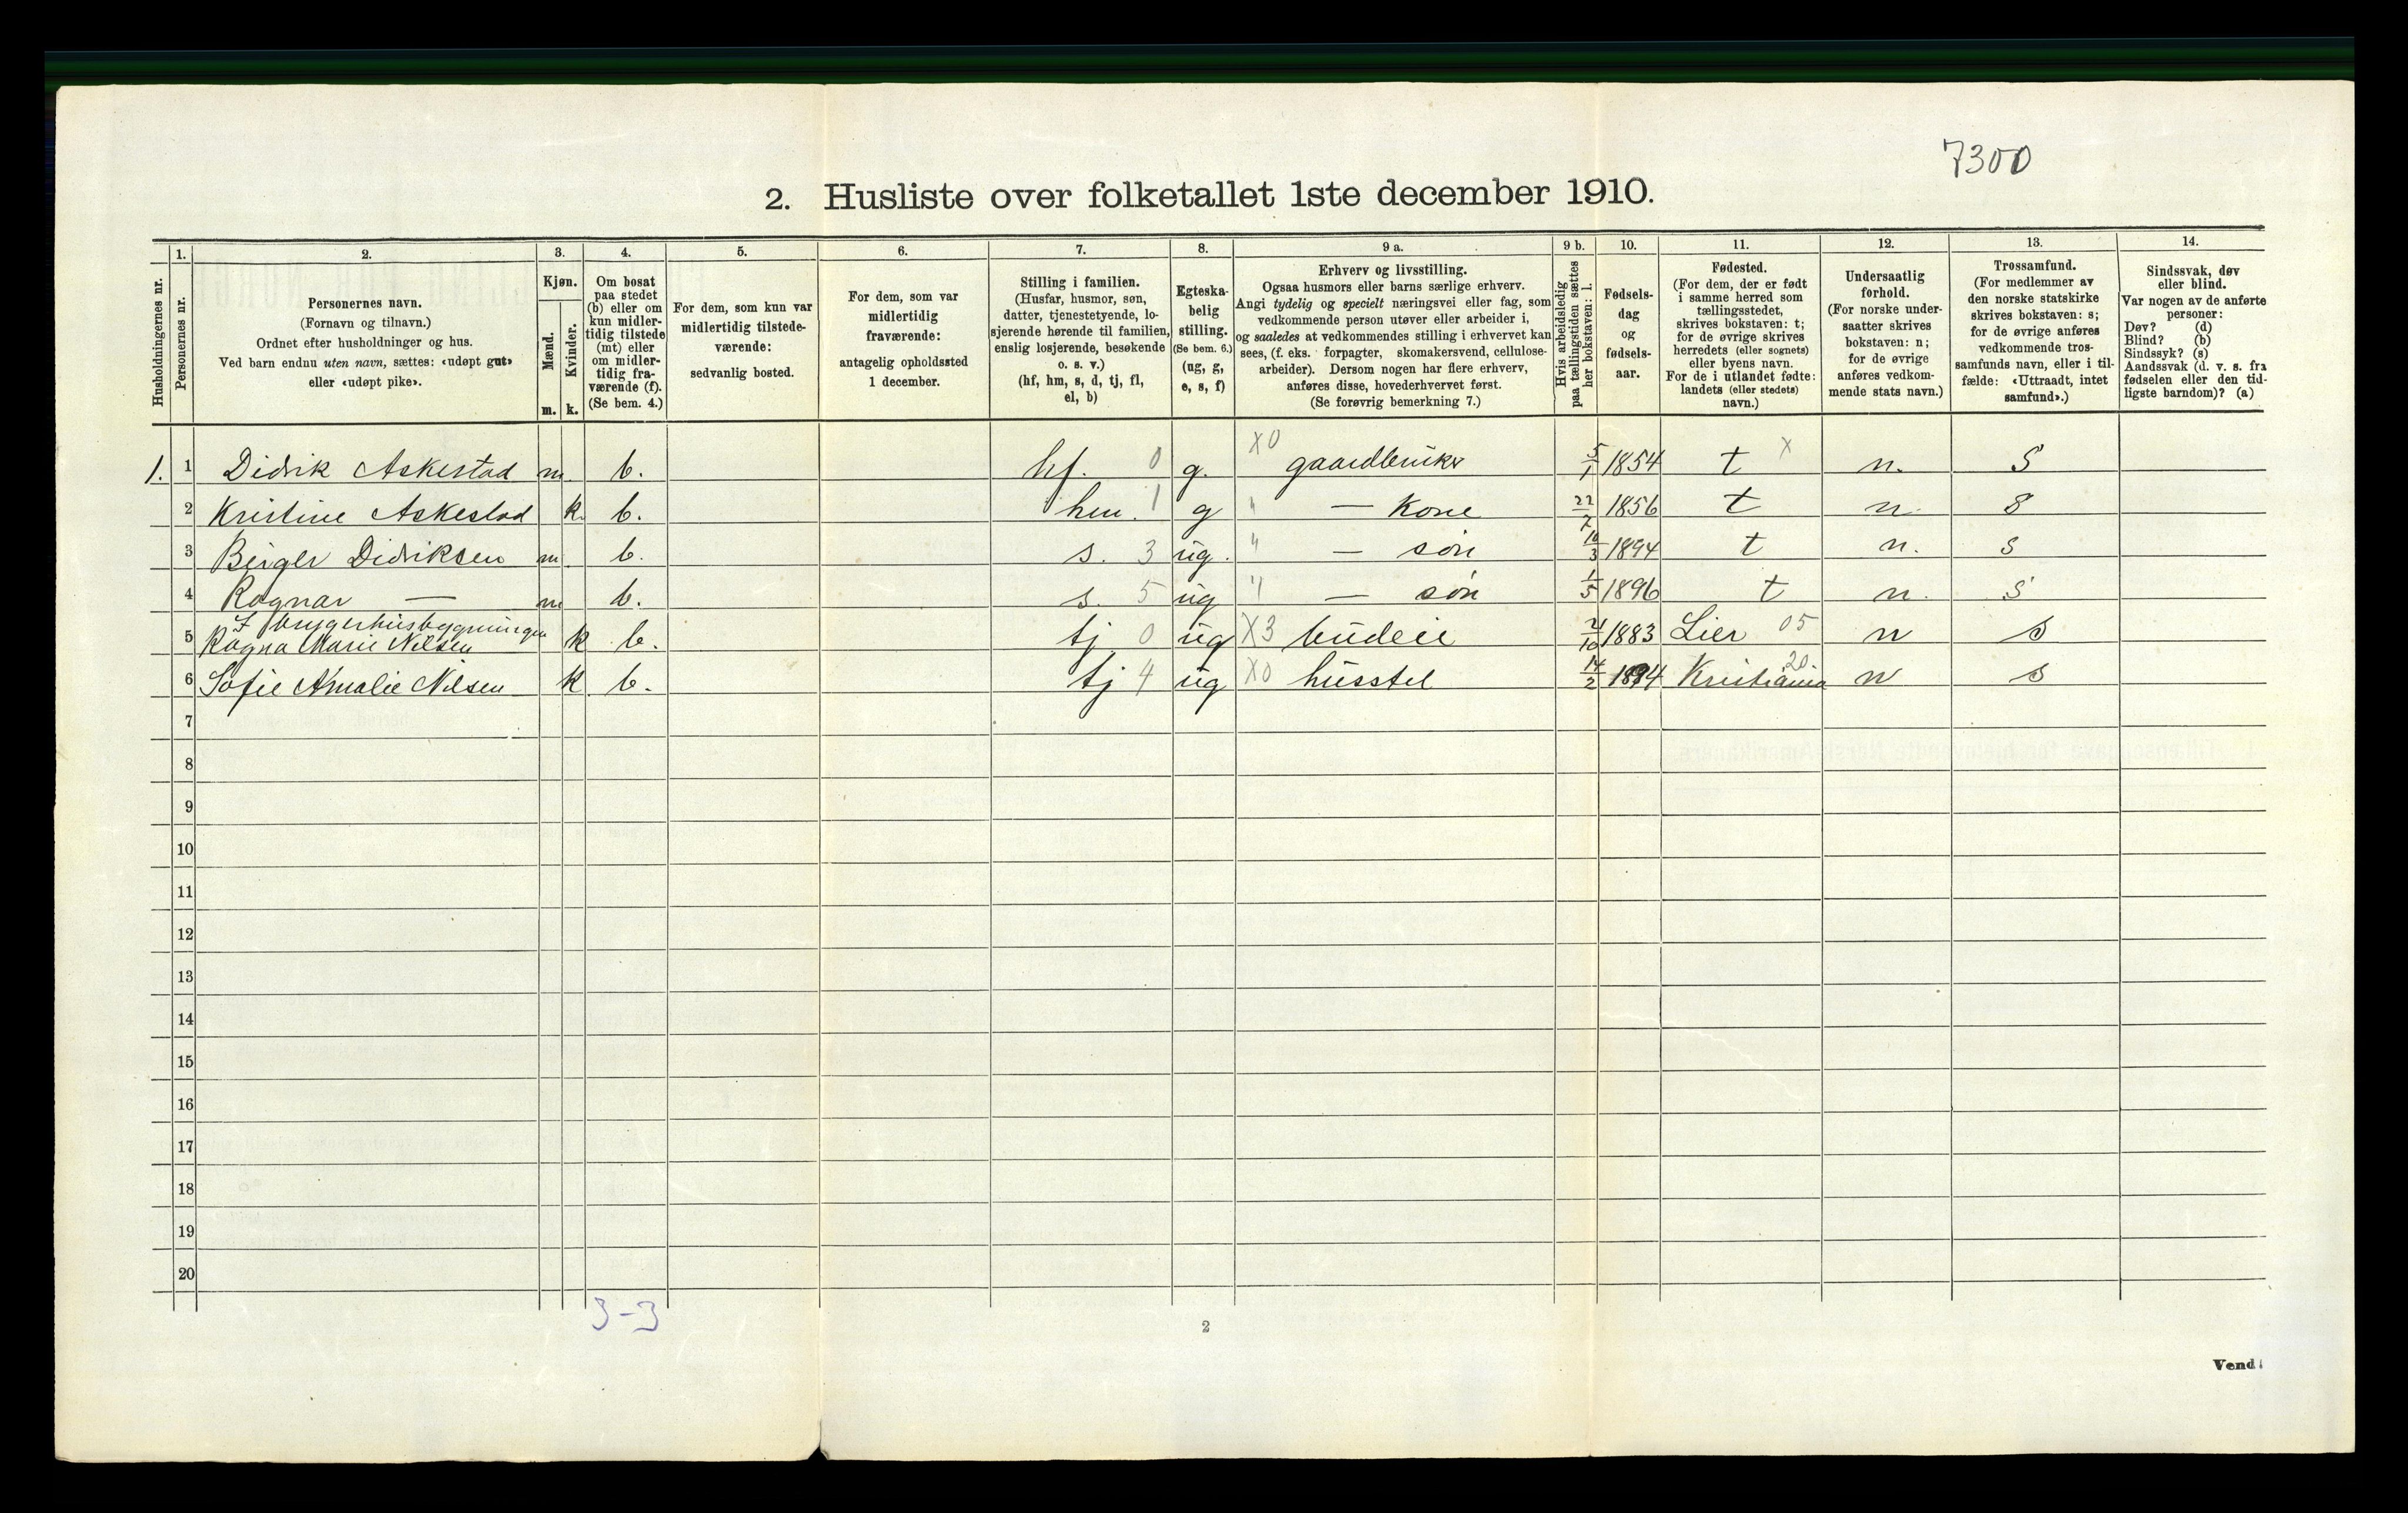 7300
2. Husliste over folketallet 1ste december 1910.
Husholdningernes nr.
1.
Personernes nr.
2.
Personernes navn.
(Fornavn og tilnavn.)
Ordnet efter husholdninger og hus.
Ved barn endnu uten navn, sættes: «udøpt gut»
eller «udøpt pike».
3.
Kjøn.
Mænd.
Kvinder.
m. k.
4.
Om bosat
paa stedet
(b) eller om
kun midler-
tidig tilstede
(mt) eller
om midler-
tidig fra-
værende (f).
(Se bem. 4.)
5.
For dem, som kun var
midlertidig tilstede-
værende:
sedvanlig bosted.
6.
For dem, som var
midlertidig
fraværende:
antagelig opholdssted
1 december.
7.
Stilling i familien.
(Husfar, husmor, søn,
datter, tjenestetyende, lo-
sjerende hørende til familien,
enslig losjerende, besøkende
o. s. v.)
(hf, hm, s, d, tj, fl,
el, b)
8.
Egteska-
belig
stilling.
(Se bem. 6.)
(ug, g,
e, s, f)
9 a.
Erhverv og livsstilling.
Ogsaa husmors eller barns særlige erhverv.
Angi tydelig og specielt næringsvei eller fag, som
vedkommende person utøver eller arbeider i,
og saaledes at vedkommendes stilling i erhvervet kan
sees, (f. eks. forpagter, skomakersvend, cellulose-
arbeider). Dersom nogen har flere erhverv,
anføres disse, hovederhvervet først.
(Se forøvrig bemerkning 7.)
9 b.
Hvis arbeidsledig
paa tællingstiden sættes
her bokstaven: l.
10.
Fødsels-
dag
og
fødsels-
aar.
11.
Fødested.
(For dem, der er født
i samme herred som
tællingsstedet,
skrives bokstaven: t;
for de øvrige skrives
herredets (eller sognets)
eller byens navn.
For de i utlandet fødte:
landets (eller stedets)
navn.)
12.
Undersaatlig
forhold.
(For norske under-
saatter skrives
bokstaven: n;
for de øvrige
anføres vedkom-
mende stats navn.)
13.
Trossamfund.
(For medlemmer av
den norske statskirke
skrives bokstaven: s;
for de øvrige anføres
vedkommende tros-
samfunds navn, eller i til-
fælde: «Uttraadt, intet
samfund».)
14.
Sindssvak, døv
eller blind.
Var nogen av de anførte
personer:
Døv? (d)
Blind? (b)
Sindssyk? (s)
Aandssvak (d. v. s. fra
fødselen eller den tid-
ligste barndom)? (a)
1. 1 Didrik Askestad m. b. hf. 0 g. X0 gaardbruker 5/1 1854 t X n. S
2 Kristine Askestad k. b. hm. 1 g " — Kone 22/7 1856 t n. S
3 Birger Didriksen m. b. s. 3 ug. " — søn 10/3 1894 t n. s
4 Ragnar — m b. s. 5 ug " — søn 1/5 1896 t n. s
I brygerhusbygningen
5 Ragna Marie Nilsen k b. tj 0 ug X3 budeie 21/10 1883 Lier 05 n s
6 Sofie Amalie Nilsen k b. tj 4 ug X0 husstel 14/2 1894 Kristiania 20. n s
7
8
9
10
11
12
13
14
15
16
17
18
19
20
3-3
2
Vend!